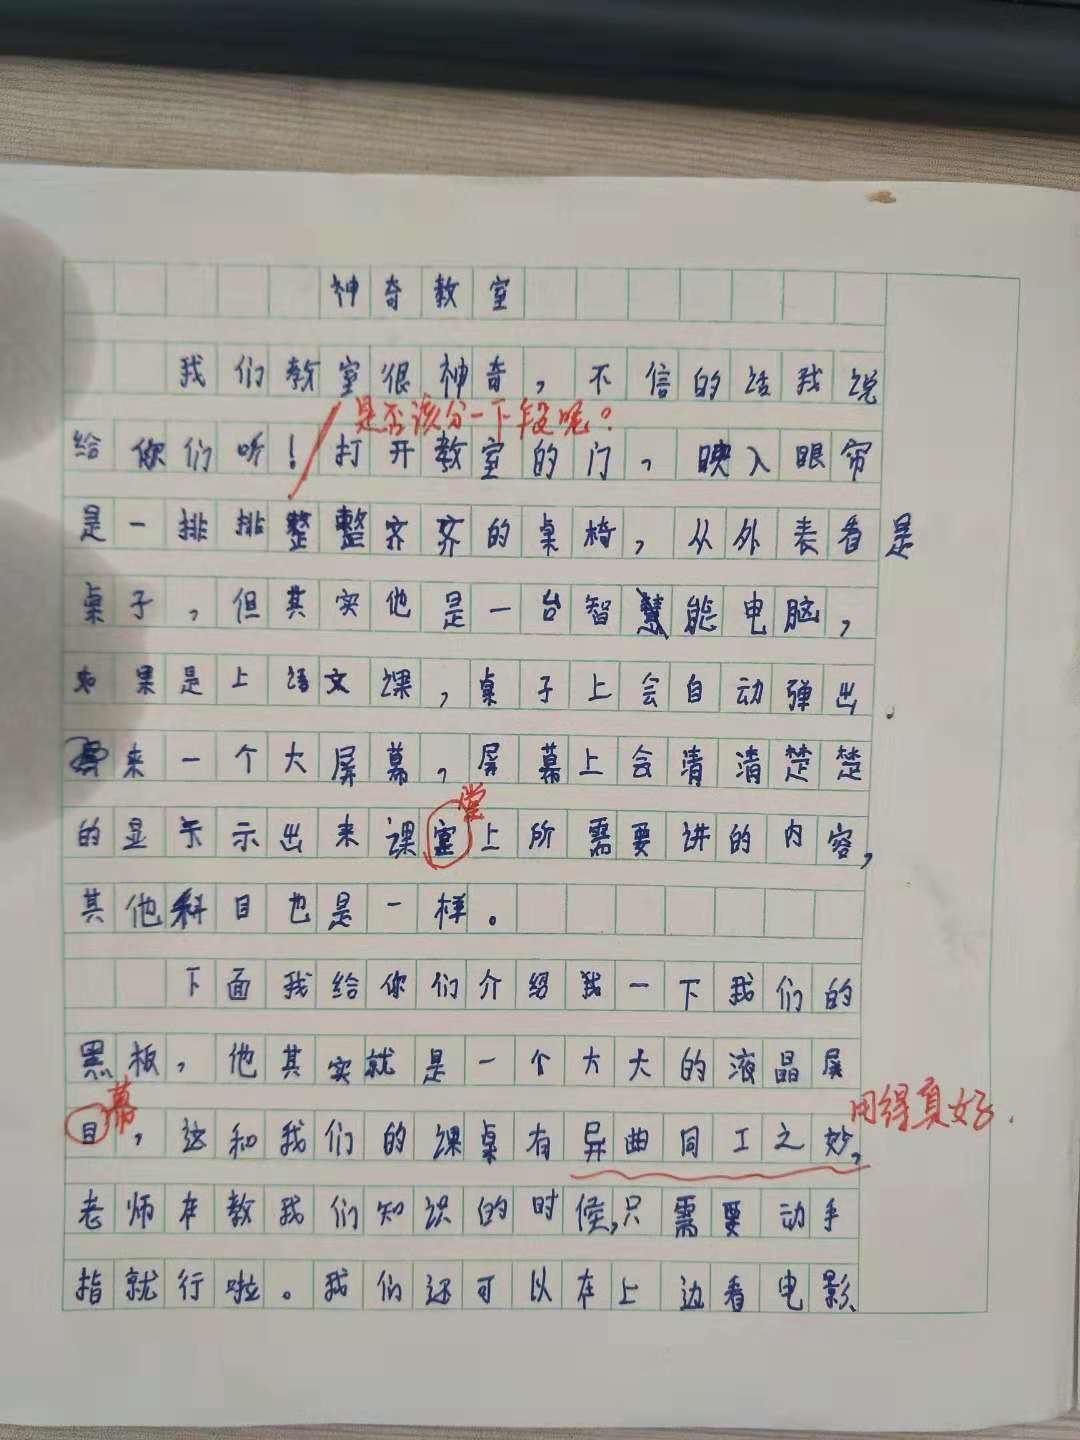 神奇教室
我们教室很神奇，不信的话我说
是否该分一下段呢？
给你们听！打开教室的门，映入眼帘
是一排排整整齐齐的桌椅，从外表看是
桌子，但其实他是一台智慧能电脑，
如果是上语文课，桌子上会自动弹出
来一个大屏幕，屏幕上会清清楚楚
堂
的显示示出来课室上所需要讲的内容，
其他科目也是一样。
下面我给你们介绍我一下我们的
黑板，他其实就是一个大大的液晶屏
幕
用得真好.
目，这和我们的课桌有异曲同工之妙，
老师在教我们知识的时候，只需要动手
指就行啦。我们还可以在上边看电影